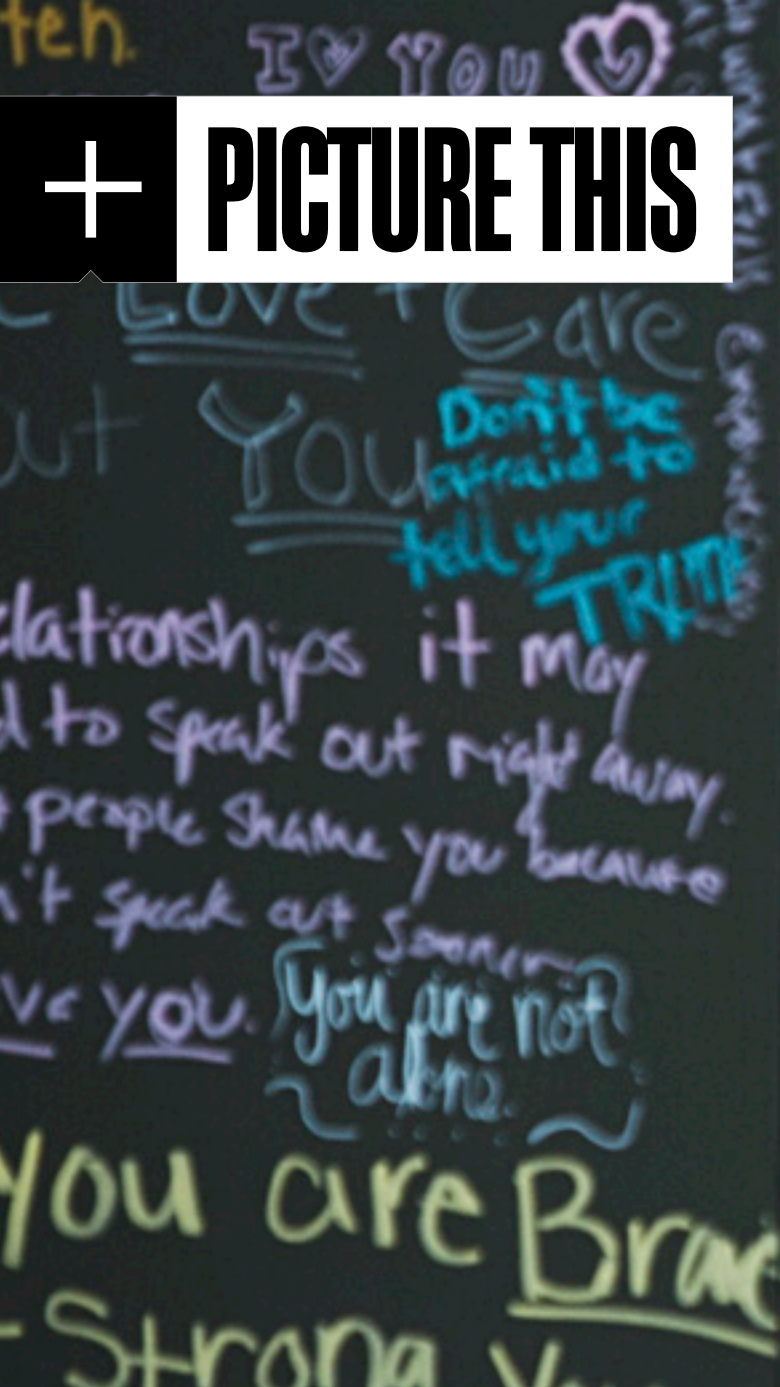 ten.
I ♡ You ♡
PICTURE THIS
Love + Care
out You
Don't be
afraid to
tell your
TRUTH
elationships it may
d to speak out right away.
people shame you because
n't speak out sooner
ve you.
You are not
alone.
you are Brave
Strong